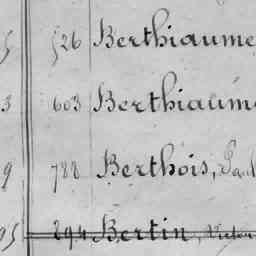 5 526 Berthiaume
3 603 Berthiaume
9 788 Berthois,
95 294 Bertin, Victor